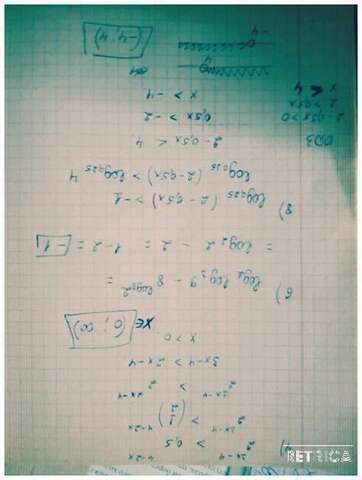 4) 2^(3x-4) > 0,5^(4-2x)
2^(3x-4) > (1/2)^(4-2x)
2^(3x-4) > 2^(2x-4)
3x-4 > 2x-4
x > 0
x∈ (0; ∞)
6) log₂ log₃ 9 - 8^(log₈ 2) =
= log₂ 2 - 2 = 1-2 = -1
8) log₀,₂₅ (2-0,5x) > -1
log₀,₂₅ (2-0,5x) > log₀,₂₅ 4
2-0,5x < 4
0,5x > -2
x > -4
ОДЗ
2-0,5x>0
2 > 0,5x
x < 4
-4
4
(-4; 4)
RETRICA